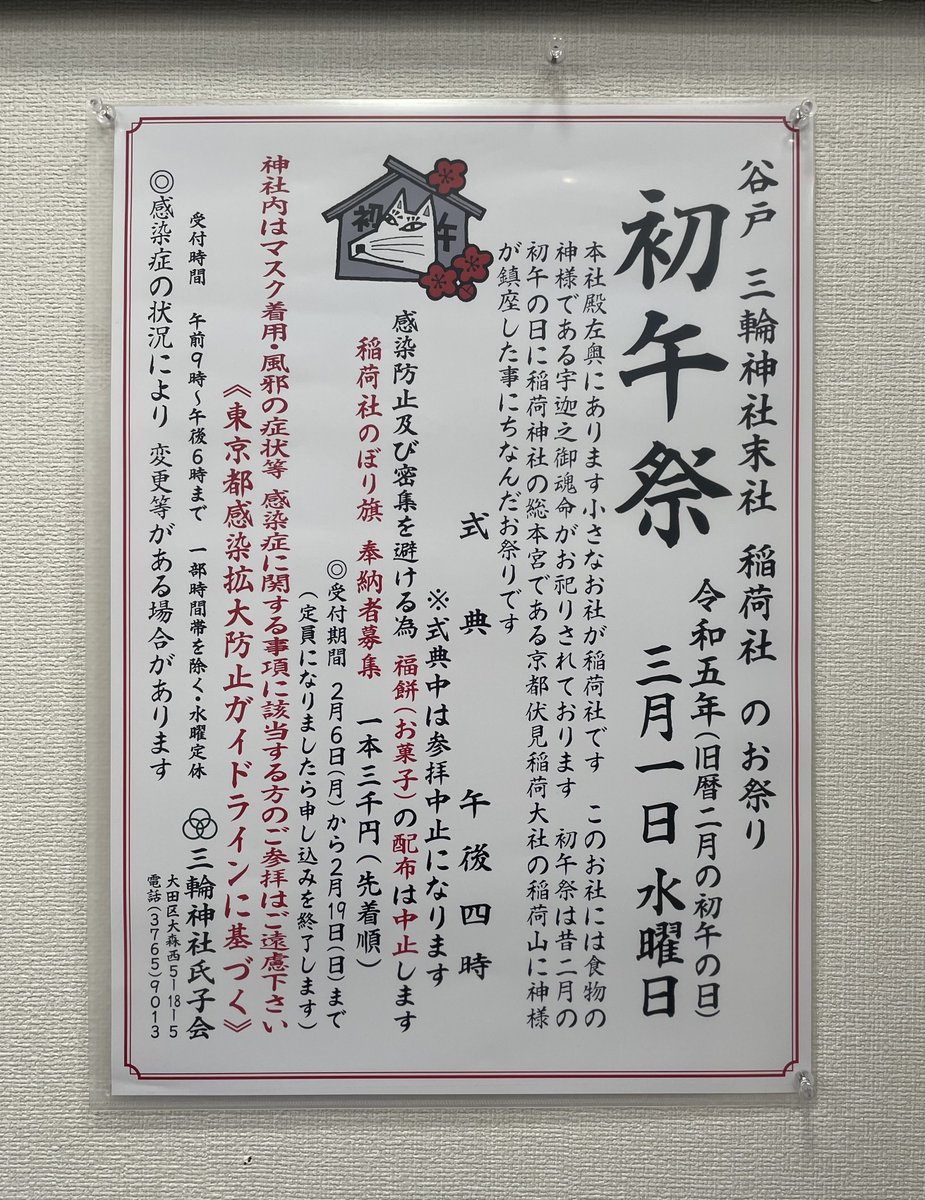 谷戸 三輪神社末社 稲荷社 のお祭り
令和五年(旧暦二月の初午の日)
初午祭 三月一日 水曜日
本社殿左奥にあります小さなお社が稲荷社です このお社には食物の
神様である宇迦之御魂命がお祀りされております 初午祭は昔二月の
初午の日に稲荷神社の総本宮である京都伏見稲荷大社の稲荷山に神様
が鎮座した事にちなんだお祭りです
式典 午後四時
※式典中は参拝中止になります
感染防止及び密集を避ける為 福餅(お菓子)の配布は中止します
稲荷社のぼり旗 奉納者募集 一本三千円(先着順)
◎受付期間 2月6日(月)から2月19日(日)まで
(定員になりましたら申し込みを終了します)
初午
神社内はマスク着用・風邪の症状等 感染症に関する事項に該当する方のご参拝はご遠慮下さい
《東京都感染拡大防止ガイドラインに基づく》
受付時間 午前9時〜午後6時まで 一部時間帯を除く・水曜定休
◎感染症の状況により 変更等がある場合があります
三輪神社氏子会
大田区大森西5-18-5
電話(3765)9013